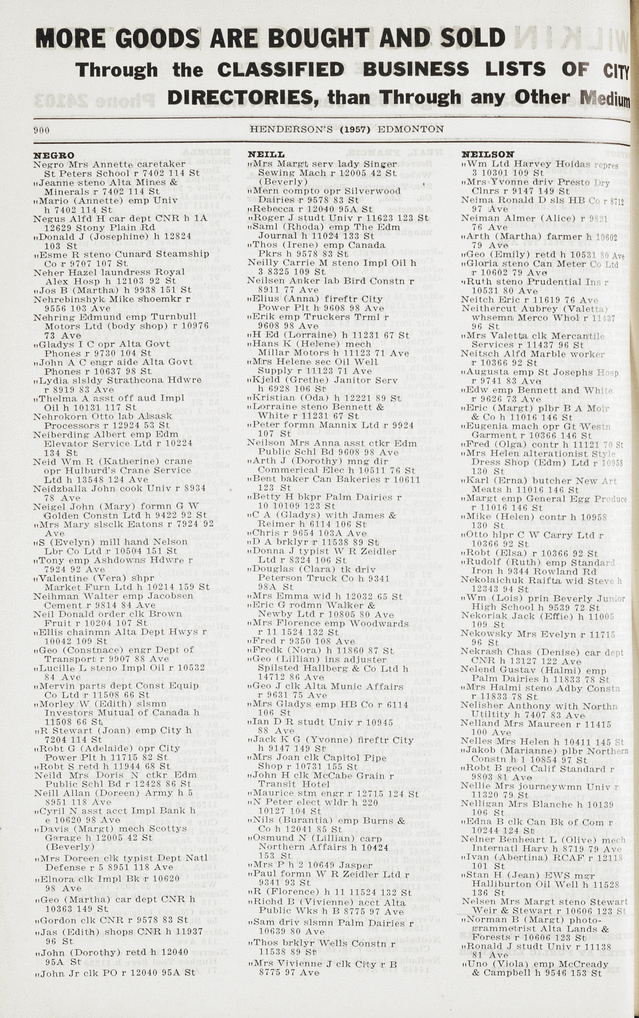 MORE GOODS ARE BOUGHT AND SOLD
Through the CLASSIFIED BUSINESS LISTS OF CITY
DIRECTORIES, than Through any Other Medium
900
HENDERSON'S (1957) EDMONTON
NEGRO
Negro Mrs Annette caretaker
St Peters School r 7402 114 St
„Jeanne steno Alta Mines &
Minerals r 7402 114 St
„Mario (Annette) emp Univ
h 7402 114 St
Negus Alfd H car dept CNR h 1A
12629 Stony Plain Rd
„Donald J (Josephine) h 12824
103 St
„Esme R steno Cunard Steamship
Co r 9707 107 St
Neher Hazel laundress Royal
Alex Hosp h 12103 92 St
„Jos B (Martha) h 9938 151 St
Nehrebinshyk Mike shoemkr r
9556 103 Ave
Nehring Edmund emp Turnbull
Motors Ltd (body shop) r 10976
73 Ave
„Gladys I C opr Alta Govt
Phones r 9730 104 St
„John A C engr aide Alta Govt
Phones r 10637 98 St
„Lydia slsldy Strathcona Hdwre
r 8919 83 Ave
„Thelma A asst off aud Impl
Oil h 10131 117 St
Nehrokorn Otto lab Alsask
Processors r 12924 53 St
Neiberding Albert emp Edm
Elevator Service Ltd r 10224
134 St
Neid Wm R (Katherine) crane
opr Hulburd's Crane Service
Ltd h 13548 124 Ave
Neidzballa John cook Univ r 8934
78 Ave
Neigel John (Mary) formn G W
Golden Constn Ltd h 9422 92 St
„Mrs Mary slsclk Eatons r 7924 92
Ave
„S (Evelyn) mill hand Nelson
Lbr Co Ltd r 10504 151 St
„Tony emp Ashdowns Hdwre r
7924 92 Ave
„Valentine (Vera) shpr
Market Furn Ltd h 10214 159 St
Neihman Walter emp Jacobsen
Cement r 9814 84 Ave
Neil Donald order clk Brown
Fruit r 10204 107 St
„Ellis chainmn Alta Dept Hwys r
10042 109 St
„Geo (Constnace) engr Dept of
Transport r 9907 88 Ave
„Lucille L steno Impl Oil r 10532
84 Ave
„Mervin parts dept Const Equip
Co Ltd r 11508 66 St
„Morley W (Edith) slsmn
Investors Mutual of Canada h
11508 66 St
„R Stewart (Joan) emp City h
7204 114 St
„Robt G (Adelaide) opr City
Power Plt h 11715 82 St
„Robt S retd h 11944 68 St
Neild Mrs Doris N ctkr Edm
Public Schl Bd r 12428 86 St
Neill Allan (Doreen) Army h 5
8951 118 Ave
„Cyril N asst acct Impl Bank h
e 10620 98 Ave
„Davis (Margt) mech Scottys
Garage h 12005 42 St
(Beverly)
„Mrs Doreen clk typist Dept Natl
Defense r 5 8951 118 Ave
„Elnora clk Impl Bk r 10620
98 Ave
„Geo (Martha) car dept CNR h
10363 149 St
„Gordon clk CNR r 9578 83 St
„Jas (Edith) shops CNR h 11937
96 St
„John (Dorothy) retd h 12040
95A St
„John Jr clk PO r 12040 95A St
NEILL
„Mrs Margt serv lady Singer
Sewing Mach r 12005 42 St
(Beverly)
„Mern compto opr Silverwood
Dairies r 9578 83 St
„Rebecca r 12040 95A St
„Roger J studt Univ r 11623 123 St
„Saml (Rhoda) emp The Edm
Journal h 11024 133 St
„Thos (Irene) emp Canada
Pkrs h 9578 83 St
Neilly Carrie M steno Impl Oil h
3 8325 109 St
Neilsen Anker lab Bird Constn r
8911 77 Ave
„Elius (Anna) fireftr City
Power Plt h 9608 98 Ave
„Erik emp Truckers Trml r
9608 98 Ave
„H Ed (Lorraine) h 11231 67 St
„Hans K (Helene) mech
Millar Motors h 11123 71 Ave
„Mrs Helene sec Oil Well
Supply r 11123 71 Ave
„Kjeld (Grethe) Janitor Serv
h 6928 106 St
„Kristian (Oda) h 12221 89 St
„Lorraine steno Bennett &
White r 11231 67 St
„Peter formn Mannix Ltd r 9924
107 St
Neilson Mrs Anna asst ctkr Edm
Public Schl Bd 9608 98 Ave
„Arth J (Dorothy) mng dir
Commerical Elec h 10511 76 St
„Bent baker Can Bakeries r 10611
123 St
„Betty H bkpr Palm Dairies r
10 10109 123 St
„C A (Gladys) with James &
Reimer h 6114 106 St
„Chris r 9654 103A Ave
„D A brklyr r 11538 89 St
„Donna J typist W R Zeidler
Ltd r 8324 106 St
„Douglas (Clara) tk driv
Peterson Truck Co h 9341
98A St
„Mrs Emma wid h 12032 65 St
„Eric G rodmn Walker &
Newby Ltd r 10805 80 Ave
„Mrs Florence emp Woodwards
r 11 1524 132 St
„Fred r 9350 108 Ave
„Fredk (Nora) h 11860 87 St
„Geo (Lillian) ins adjuster
Spilsted Hallberg & Co Ltd h
14712 86 Ave
„Geo J clk Alta Munic Affairs
r 9631 75 Ave
„Mrs Gladys emp HB Co r 6114
106 St
„Ian D R studt Univ r 10945
88 Ave
„Jack K G (Yvonne) fireftr City
h 9147 149 St
„Mrs Joan clk Capitol Pipe
Shop r 10731 155 St
„John H clk McCabe Grain r
Transit Hotel
„Maurice stm engr r 12715 124 St
„N Peter elect wldr h 220
10127 104 St
„Nils (Burantia) emp Burns &
Co h 12041 85 St
„Osmund N (Lillian) carp
Northern Affairs h 10424
153 St
„Mrs P h 2 10649 Jasper
„Paul formn W R Zeidler Ltd r
9341 93 St
„R (Florence) h 11 11524 132 St
„Richd B (Vivienne) acct Alta
Public Wks h B 8775 97 Ave
„Sam driv slsmn Palm Dairies r
10639 80 Ave
„Thos brklyr Wells Constn r
11538 89 St
„Mrs Vivienne J clk City r B
8775 97 Ave
NEILSON
„Wm Ltd Harvey Hoidas repres
3 10301 109 St
„Mrs Yvonne driv Presto Dry
Clnrs r 9147 149 St
Neima Ronald D sls HB Co r 8712
97 Ave
Neiman Almer (Alice) r 9821
76 Ave
„Arth (Martha) farmer h 10602
79 Ave
„Geo (Emily) retd h 10531 80 Ave
„Gloria steno Can Meter Co Ltd
r 10602 79 Ave
„Ruth steno Prudential Ins r
10531 80 Ave
Neitch Eric r 11619 76 Ave
Neithercut Aubrey (Valetta)
whsemn Merco Whol r 11437
96 St
„Mrs Valetta clk Mercantile
Services r 11437 96 St
Neitsch Alfd Marble worker
r 10366 92 St
„Augusta emp St Josephs Hosp
r 9741 83 Ave
„Edw emp Bennett and White
r 9626 73 Ave
„Eric (Margt) plbr B A Moir
& Co h 11016 146 St
„Eugenia mach opr Gt Westn
Garment r 10366 146 St
„Fred (Olga) contr h 11121 70 St
„Mrs Helen alterationist Style
Dress Shop (Edm) Ltd r 10958
130 St
„Karl (Erna) butcher New Art
Meats h 11016 146 St
„Margt emp General Egg Produce
r 11016 146 St
„Mike (Helen) contr h 10958
130 St
„Otto hlpr C W Carry Ltd r
10366 92 St
„Robt (Elsa) r 10366 92 St
„Rudolf (Ruth) emp Standard
Iron h 9344 Rowland Rd
Nekolaichuk Raifta wid Steve h
12343 94 St
„Wm (Lois) prin Beverly Junior
High School h 9539 72 St
Nekoriak Jack (Effie) h 11005
109 St
Nekowsky Mrs Evelyn r 11715
96 St
Nekrash Chas (Denise) car dept
CNR h 13127 122 Ave
Nelend Gustav (Halmi) emp
Palm Dairies h 11833 78 St
„Mrs Halmi steno Adby Constn
r 11833 78 St
Nelisher Anthony with Northn
Utiltity h 7407 83 Ave
Nelland Mrs Maureen r 11415
100 Ave
Nelles Mrs Helen h 10411 145 St
„Jakob (Marianne) plbr Northern
Constn h 1 10854 97 St
„Robt B geol Calif Standard r
9803 81 Ave
Nellie Mrs journeywmn Univ r
11320 79 St
Nelligan Mrs Blanche h 10139
106 St
„Edna B clk Can Bk of Com r
10244 124 St
Nelner Benheart L (Olive) mech
Internatl Harv h 8719 79 Ave
„Ivan (Abertina) RCAF r 12118
101 St
„Stan H (Jean) EWS mgr
Halliburton Oil Well h 11528
136 St
Nelsen Mrs Margt steno Stewart
Weir & Stewart r 10606 123 St
„Norman B (Margt) photo-
grammetrist Alta Lands &
Forests r 10606 123 St
„Ronald J studt Univ r 11138
81 Ave
„Uno (Viola) emp McCready
& Campbell h 9546 153 St